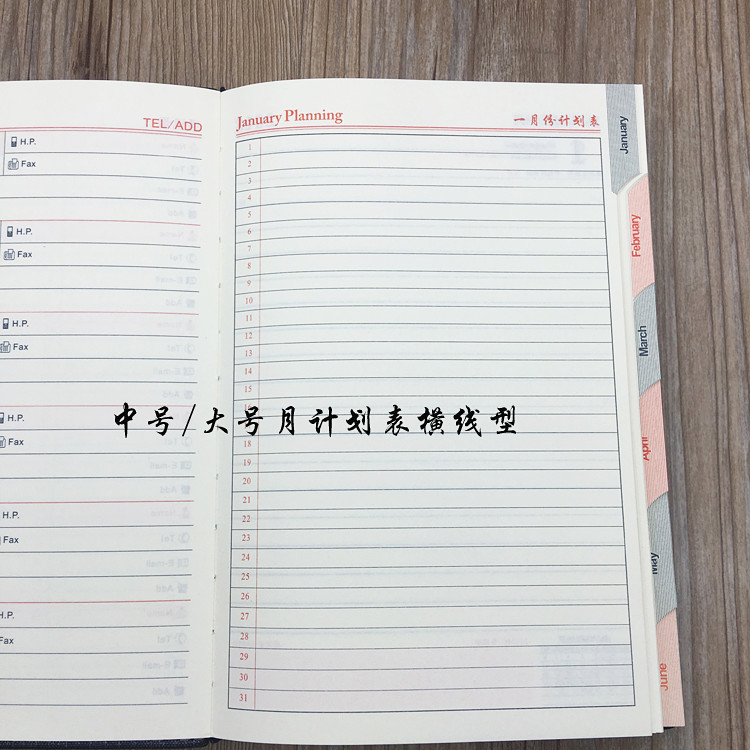 TEL/ADD
H.P.
Fax
H.P.
Fax
H.P.
Fax
H.P.
Fax
H.P.
Fax
H.P.
Fax
January Planning 一月份计划表
1
2
3
4
5
6
7
8
9
10
11
12
13
14
15
中号/大号月计划表横线型
18
19
20
21
22
23
24
25
26
27
28
29
30
31
January
February
March
April
May
June